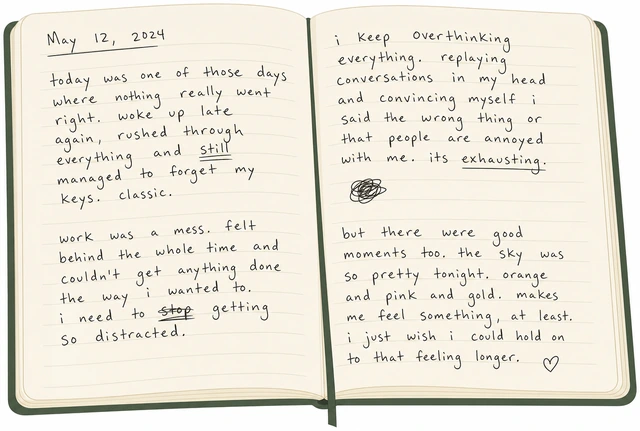 May 12, 2024
today was one of those days
where nothing really went
right. woke up late
again, rushed through
everything and still
managed to forget my
keys. classic.
work was a mess. felt
behind the whole time and
couldn't get anything done
the way i wanted to.
i need to stop getting
so distracted.
i keep overthinking
everything. replaying
conversations in my head
and convincing myself i
said the wrong thing or
that people are annoyed
with me. its exhausting.
but there were good
moments too. the sky was
so pretty tonight. orange
and pink and gold. makes
me feel something, at least.
i just wish i could hold on
to that feeling longer.